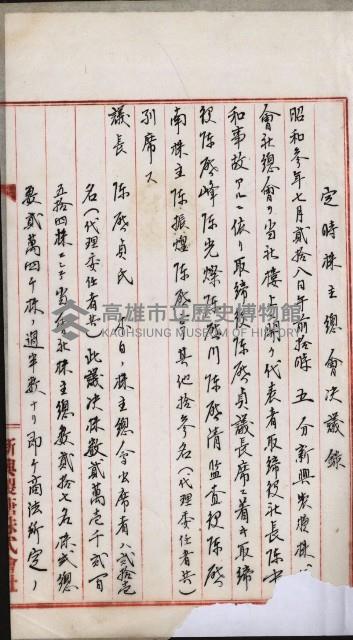 定時株主總會決議錄
昭和參年七月貳拾八日午前拾時五分新興製糖株
會社總會ヲ當社樓上ニ開ク代表者取締役社長陳中
和事故アルニ依リ取締役陳啓貞議長席ニ著キ取締
役陳啓峰陳光燦陳啓川陳啓清監査役陳啓
南株主陳振煌陳啓 其他拾參名(代理委任者共)
列席ス
議長 陳啓貞氏 日ク株主總會出席者ハ貳拾壱
名(代理委任者共)此議決株數貳萬壱千貳百
五拾四株ニシテ當會社株主總數貳拾七名株式總
數貳萬四千株ノ過半數ナリ即チ商法所定ノ
新興製糖株式會社
高雄市立歷史博物館
KAOHSIUNG MUSEUM OF HISTORY